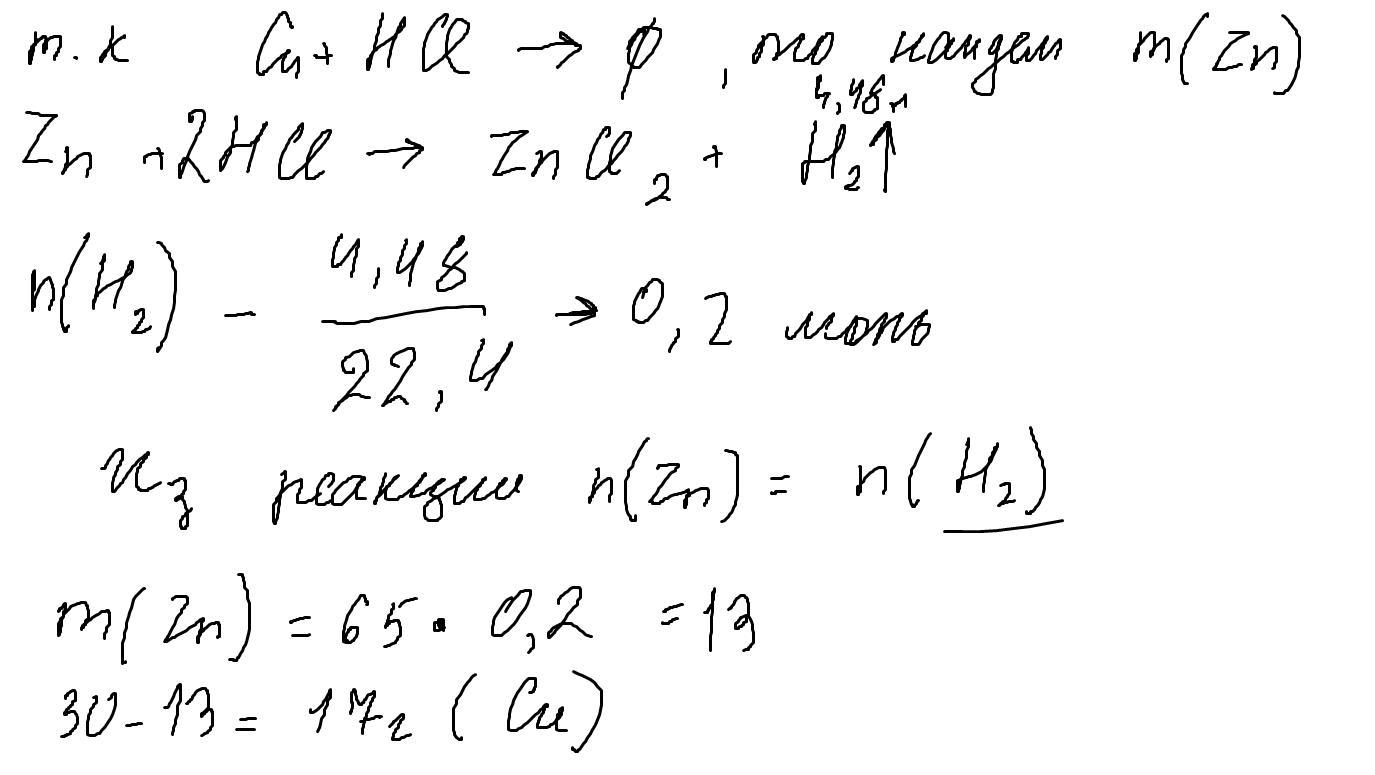 т.к Cu + HCl → ∅, то найдем m(Zn)
4,48 л
Zn + 2HCl → ZnCl₂ + H₂↑
n(H₂) - 4,48/22,4 → 0,2 моль
Из реакции n(Zn) = n(H₂)
m(Zn) = 65 · 0,2 = 13
30 - 13 = 17г (Cu)